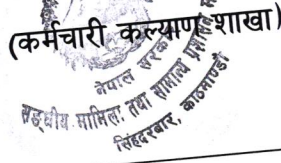 (कर्मचारी कल्याण शाखा)
नेपाल सरकार
सङ्घीय मामिला तथा सामान्य प्रशासन
सिंहदरबार, काठमाण्डौ